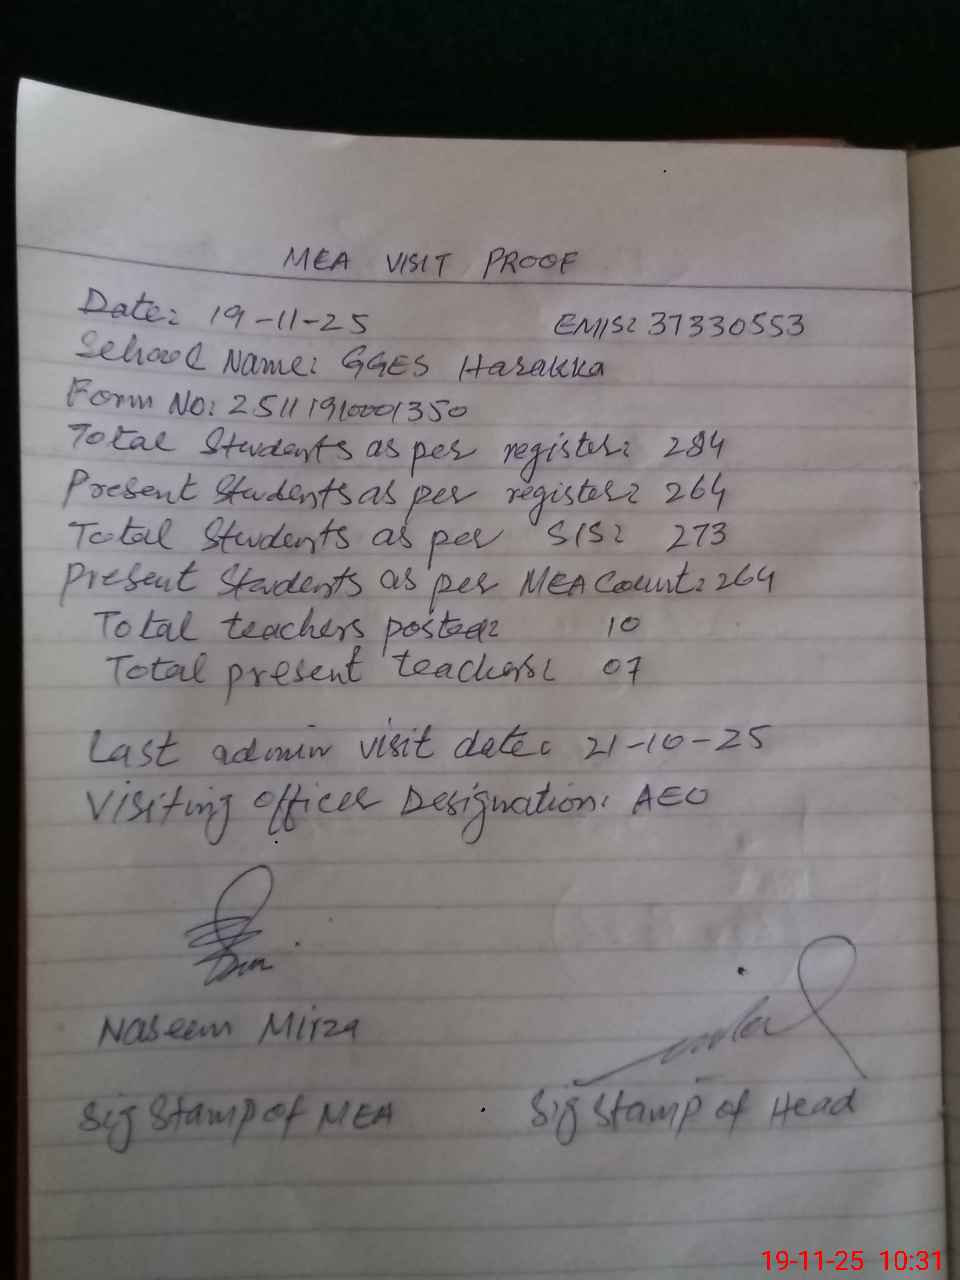 MEA VISIT PROOF
Date: 19-11-25 EMIS: 37330553
School Name: GGES Harakka
Form No: 25111910001350
Total Students as per register: 284
Present Students as per register: 264
Total Students as per SIS: 273
Present Students as per MEA Count: 264
Total teachers posted: 10
Total present teachers: 07
Last admin visit date: 21-10-25
Visiting officer Designation: AEO
Naseem Mirza
Sig Stamp of MEA Sig Stamp of Head
19-11-25 10:31